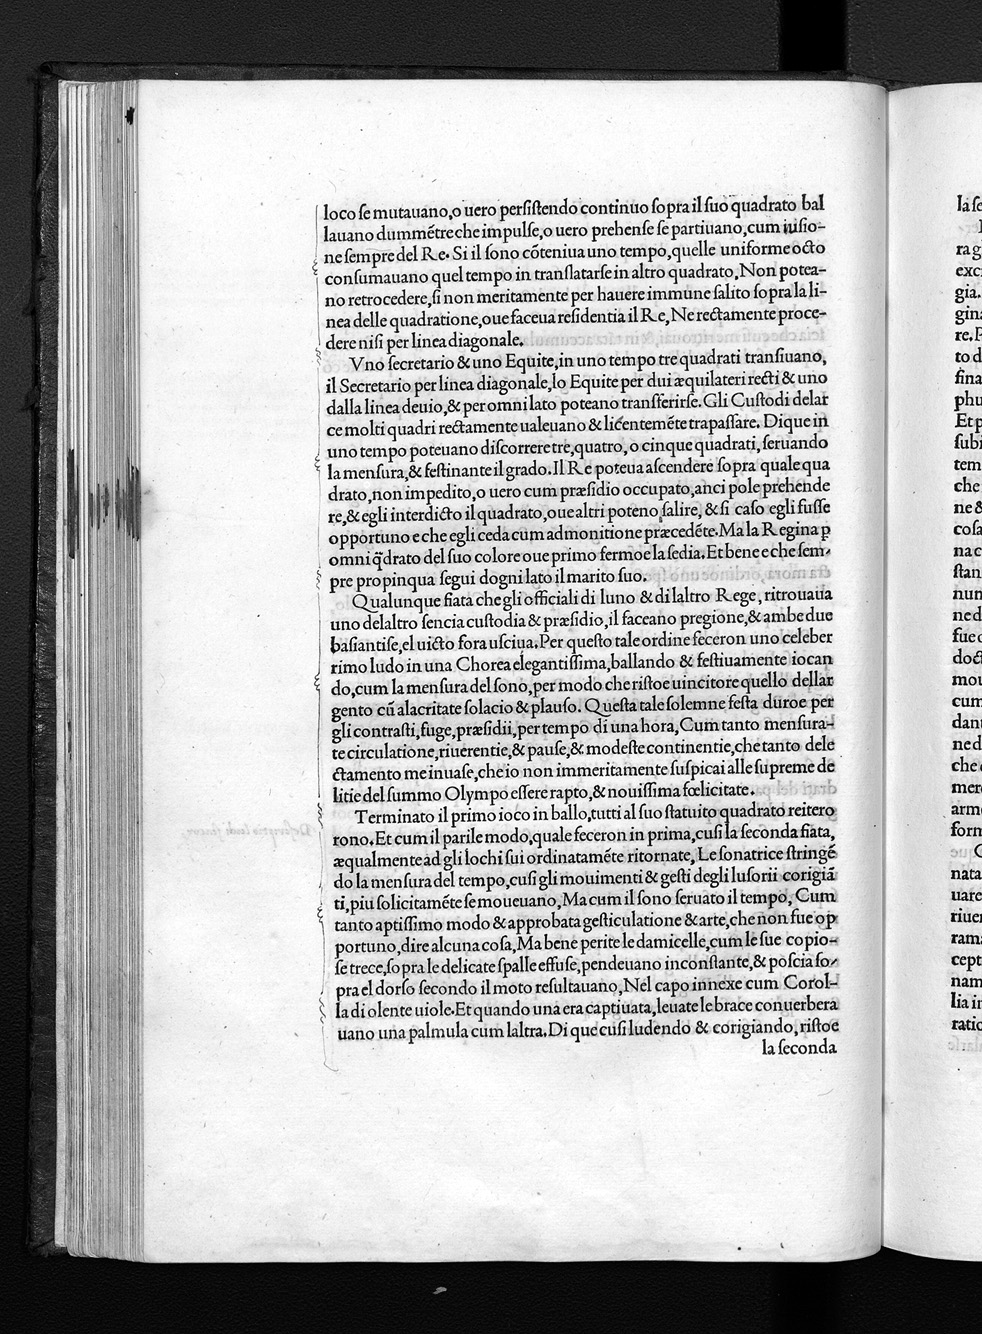 loco ſe mutauano,o uero perſiſtendo continuo ſopra il ſuo quadrato bal
lauano dummẽtre che impulſe,o uero prehenſe ſe partiuano,cum iuſio-
ne ſempre del Re. Si il ſono cõteniua uno tempo,quelle uniforme octo
conſumauano quel tempo in tranſlatarſe in altro quadrato,Non potea-
no retrocedere,ſi non meritamente per hauere immune ſalito ſopra la li-
nea delle quadratione,oue faceua reſidentia il Re,Ne rectamente proce-
dere niſi per linea diagonale.
Vno ſecretario & uno Equite,in uno tempo tre quadrati tranſiuano,
il Secretario per linea diagonale,lo Equite per dui æquilateri recti & uno
dalla linea deuio,& per omni lato poteano transferirſe.Gli Cuſtodi delar
ce molti quadri rectamente ualeuano & licentemẽte trapaſſare. Dique in
uno tempo poteuano diſcorrere tre,quatro, o cinque quadrati,ſeruando
la menſura,& feſtinante il grado.Il Re poteua aſcendere ſopra quale qua
drato,non impedito,o uero cum præſidio occupato,anci pole prehende
re,& egli interdicto il quadrato,oue altri poteno ſalire, & ſi caſo egli fuſſe
opportuno e che egli ceda cum admonitione præcedẽte.Ma la Regina ꝑ
omni q̃drato del ſuo colore oue primo fermoe la ſedia.Et bene e che ſem-
pre propinqua ſegui dogni lato il marito ſuo.
Qualunque fiata che gli officiali di luno & di laltro Rege, ritrouaua
uno delaltro ſencia cuſtodia & præſidio,il faceano pregione,& ambe due
baſiantiſe,el uicto fora uſciua.Per queſto tale ordine feceron uno celeber
rimo ludo in una Chorea elegantiſſima,ballando & feſtiuamente iocan
do,cum la menſura del ſono,per modo che riſtoe uincitore quello dellar
gento cũ alacritate ſolacio & plauſo. Queſta tale ſolemne feſta duroe per
gli contraſti,fuge,præſidii,per tempo di una hora,Cum tanto menſura-
te circulatione,riuerentie,& pauſe,& modeſte continentie,che tanto dele
ctamento me inuaſe,che io non immeritamente ſuſpicai alle ſupreme de
litie del ſummo Olympo eſſere rapto,& nouiſſima fœlicitate.
Terminato il primo ioco in ballo,tutti al ſuo ſtatuito quadrato reitero
rono.Et cum il parile modo,quale feceron in prima,cuſi la ſeconda fiata,
æqualmente ad gli lochi ſui ordinatamẽte ritornate, Le ſonatrice ſtringẽ
do la menſura del tempo,cuſi gli mouimenti & geſti degli luſorii corigiã
ti,piu ſolicitamẽte ſe moueuano,Ma cum il ſono ſeruato il tempo, Cum
tanto aptiſſimo modo & approbata geſticulatione & arte,che non fue op
portuno,dire alcuna coſa,Ma bene perite le damicelle,cum le ſue copio-
ſe trece,ſopra le delicate ſpalle effuſe,pendeuano inconſtante,& poſcia ſo-
pra el dorſo ſecondo il moto reſultauano,Nel capo innexe cum Corol-
la di olente uiole.Et quando una era captiuata,leuate le brace conuerbera
uano una palmula cum laltra.Di que cuſi ludendo & corigiando,riſtoe
la ſeconda